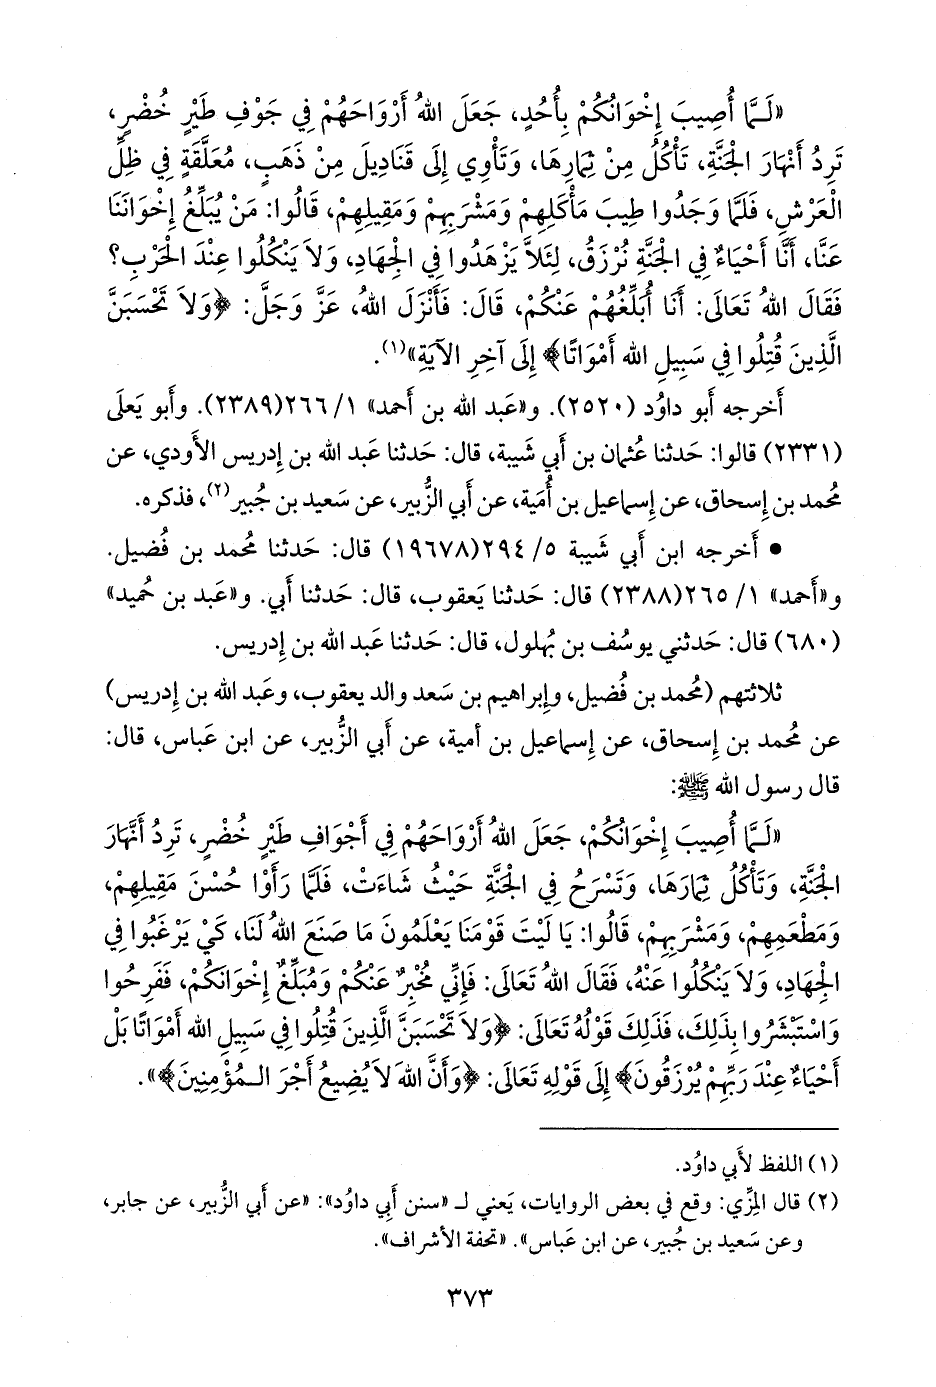 «لَـمَّا أُصِيبَ إِخْوَانُكُمْ بِأُحُدٍ، جَعَلَ اللهُ أَرْوَاحَهُمْ فِي جَوْفِ طَيْرٍ خُضْرٍ،
تَرِدُ أَنْهَارَ الْجَنَّةِ، تَأْكُلُ مِنْ ثِمَارِهَا، وَتَأْوِي إِلَى قَنَادِيلَ مِنْ ذَهَبٍ، مُعَلَّقَةٍ فِي ظِلِّ
الْعَرْشِ، فَلَمَّا وَجَدُوا طِيبَ مَأْكَلِهِمْ وَمَشْرَبِهِمْ وَمَقِيلِهِمْ، قَالُوا: مَنْ يُبَلِّغُ إِخْوَانَنَا
عَنَّا، أَنَّا أَحْيَاءٌ فِي الْجَنَّةِ نُرْزَقُ، لِئَلاَّ يَزْهَدُوا فِي الْجِهَادِ، وَلاَ يَنْكُلُوا عِنْدَ الْحَرْبِ؟
فَقَالَ اللهُ تَعَالَى: أَنَا أُبَلِّغُهُمْ عَنْكُمْ، قَالَ: فَأَنْزَلَ اللهُ، عَزَّ وَجَلَّ: ﴿وَلاَ تَحْسَبَنَّ
الَّذِينَ قُتِلُوا فِي سَبِيلِ الله أَمْوَاتًا﴾ إِلَى آخِرِ الآيَةِ»(١).
أَخرجه أَبو داوُد (٢٥٢٠). و«عَبد الله بن أَحمد» ١/ ٢٦٦(٢٣٨٩). وأَبو يَعلَى
(٢٣٣١) قالوا: حَدثنا عُثمان بن أَبي شَيبة، قال: حَدثنا عَبد الله بن إِدريس الأَودي، عن
مُحمد بن إِسحاق، عن إِسماعيل بن أُمَية، عن أَبي الزُّبير، عن سَعيد بن جُبير(٢)، فذكره.
• أَخرجه ابن أَبي شَيبة ٥/ ٢٩٤(١٩٦٧٨) قال: حَدثنا مُحمد بن فُضيل.
و«أَحمد» ١/ ٢٦٥(٢٣٨٨) قال: حَدثنا يَعقوب، قال: حَدثنا أَبي. و«عَبد بن حُميد»
(٦٨٠) قال: حَدثني يوسُف بن بُهلول، قال: حَدثنا عَبد الله بن إِدريس.
ثلاثتهم (مُحمد بن فُضيل، وإِبراهيم بن سَعد والد يعقوب، وعَبد الله بن إِدريس)
عن مُحمد بن إِسحاق، عن إِسماعيل بن أمية، عن أَبي الزُّبير، عن ابن عَباس، قال:
قال رسول الله ﷺ:
«لَـمَّا أُصِيبَ إِخْوَانُكُمْ، جَعَلَ اللهُ أَرْوَاحَهُمْ فِي أَجْوَافِ طَيْرٍ خُضْرٍ، تَرِدُ أَنْهَارَ
الْجَنَّةِ، وَتَأْكُلُ ثِمَارَهَا، وَتَسْرَحُ فِي الْجَنَّةِ حَيْثُ شَاءَتْ، فَلَمَّا رَأَوْا حُسْنَ مَقِيلِهِمْ،
وَمَطْعَمِهِمْ، وَمَشْرَبِهِمْ، قَالُوا: يَا لَيْتَ قَوْمَنَا يَعْلَمُونَ مَا صَنَعَ اللهُ لَنَا، كَيْ يَرْغَبُوا فِي
الْجِهَادِ، وَلاَ يَنْكُلُوا عَنْهُ، فَقَالَ اللهُ تَعَالَى: فَإِنِّي مُخْبِرٌ عَنْكُمْ وَمُبَلِّغٌ إِخْوَانَكُمْ، فَفَرِحُوا
وَاسْتَبْشَرُوا بِذَلِكَ، فَذَلِكَ قَوْلُهُ تَعَالَى: ﴿وَلاَ تَحْسَبَنَّ الَّذِينَ قُتِلُوا فِي سَبِيلِ الله أَمْوَاتًا بَلْ
أَحْيَاءٌ عِنْدَ رَبِّهِمْ يُرْزَقُونَ﴾ إِلَى قَوْلِهِ تَعَالَى: ﴿وَأَنَّ اللهَ لاَ يُضِيعُ أَجْرَ الـمُؤْمِنِينَ﴾».
(١) اللفظ لأَبي داوُد.
(٢) قال المِزِّي: وقع في بعض الروايات، يَعني لـ «سنن أَبِي داوُد»: «عن أَبي الزُّبير، عن جابر،
وعن سَعيد بن جُبير، عن ابن عَباس». «تحفة الأشراف».
٣٧٣